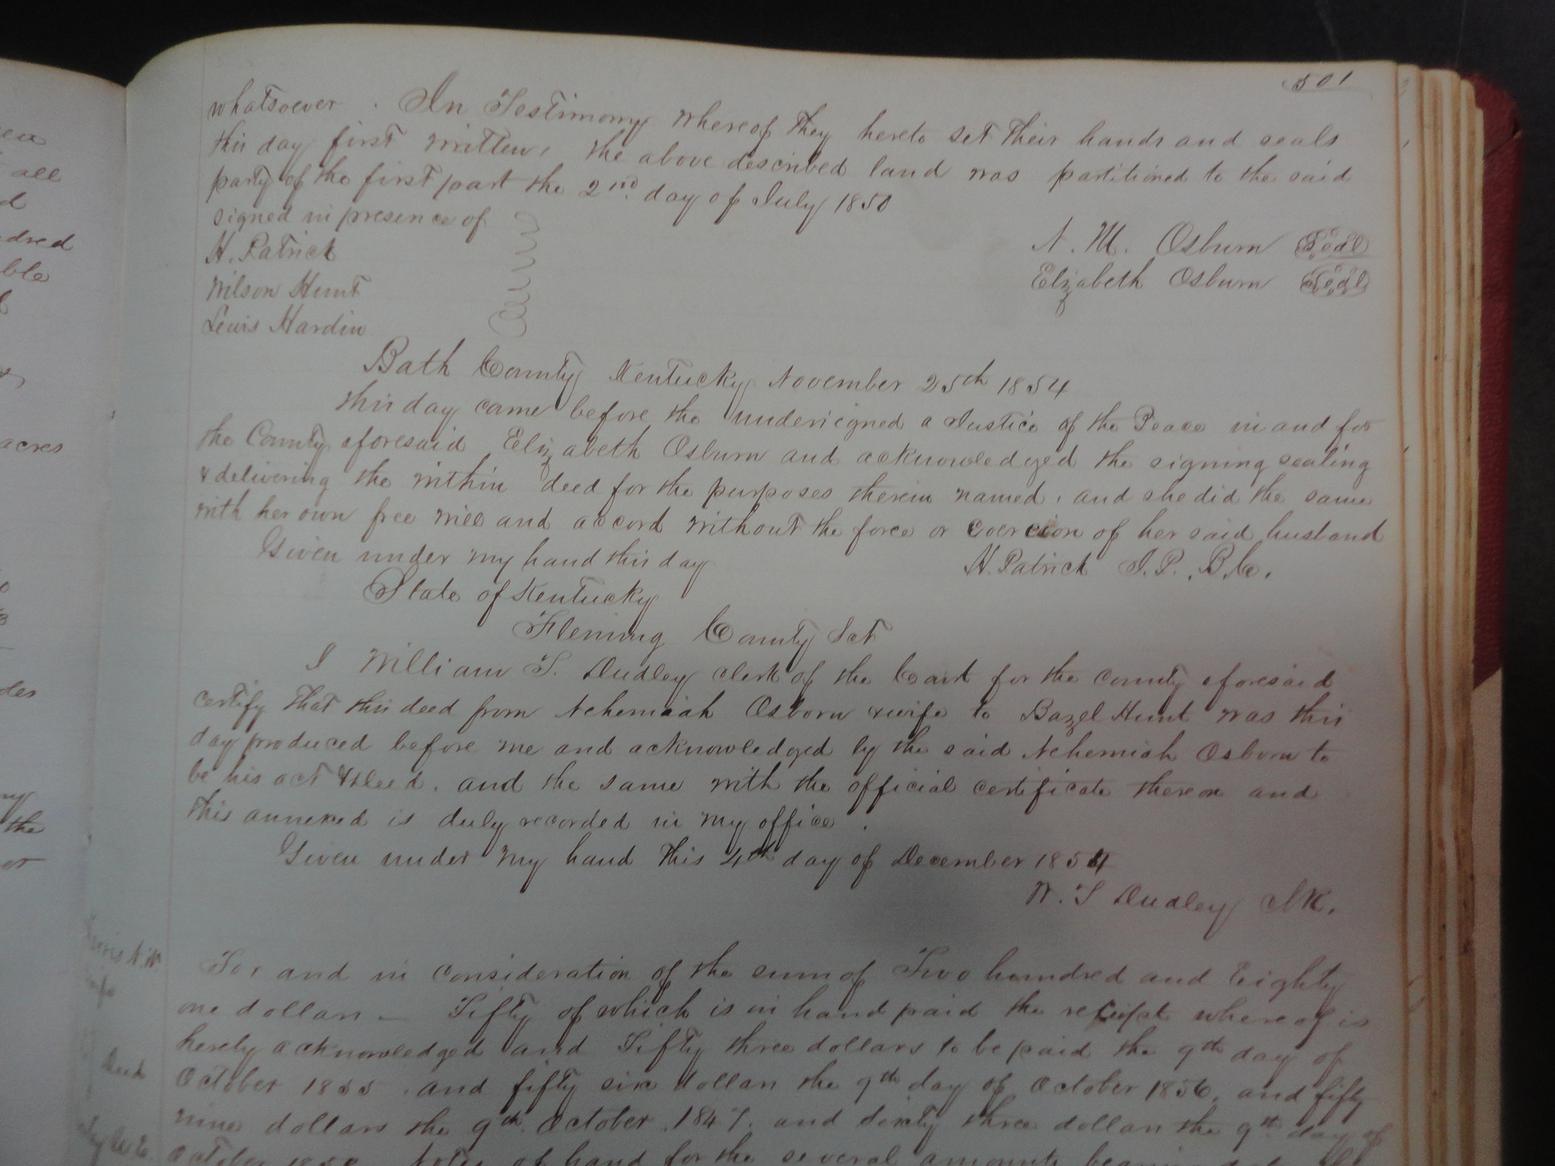 501
whatsoever. In Testimony whereof they hereto set their hands and seals
this day first written, the above described land was partitioned to the said
party of the first part the 2nd day of July 1850
signed in presence of
H. Patrick
Wilson Hunt
Lewis Hardin
N. M. Osburn Seal
Elizabeth Osburn Seal
Bath County Kentucky November 25th 1854
this day came before the undersigned a Justice of the Peace in and for
the County aforesaid Elizabeth Osburn and acknowledged the signing sealing
& delivering the within deed for the purposes therein named, and she did the same
with her own free will and accord without the force or coercion of her said husband
Given under my hand this day
H. Patrick J.P. B.C.
State of Kentucky
Fleming County Sct
I William T. Dudley clerk of the Court for the County aforesaid
certify that this deed from Nehemiah Osborn & wife to Bazel Hunt was this
day produced before me and acknowledged by the said Nehemiah Osborn to
be his act & deed, and the same with the official certificate thereon and
this annexed is duly recorded in my office.
Given under my hand this 4th day of December 1854
W. T Dudley Clk.
For and in consideration of the sum of Two hundred and Eighty
one dollars — Fifty of which is in hand paid the receipt whereof is
hereby acknowledged and Fifty three dollars to be paid the 9th day of
October 1855, and fifty six dollars the 9th day of October 1856, and fifty
nine dollars the 9th October 1847, and sixty three dollars the 9th day of
October Notes of hand for the several amounts
Deed
all
dred
ble
acres
the